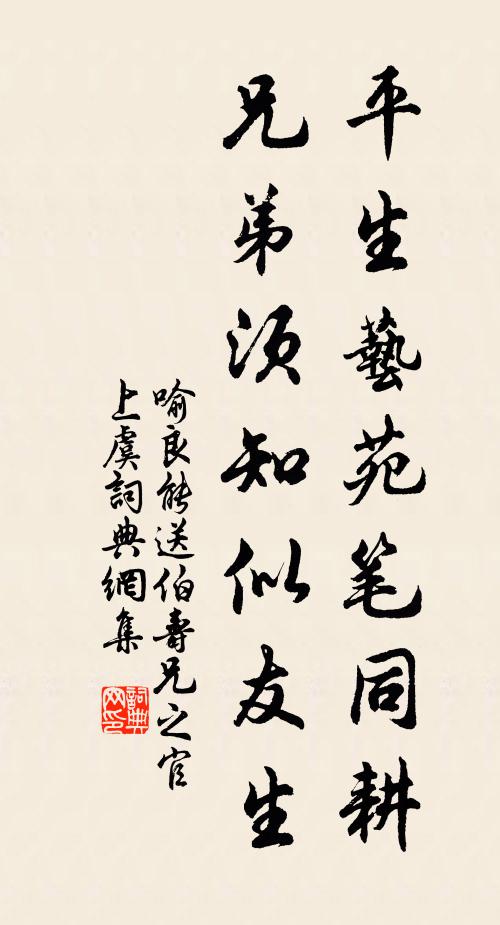 平生藝苑笔同耕
兄弟须知似友生
喻良能送伯壽兄之官
上虞詞典網集
詞典网印